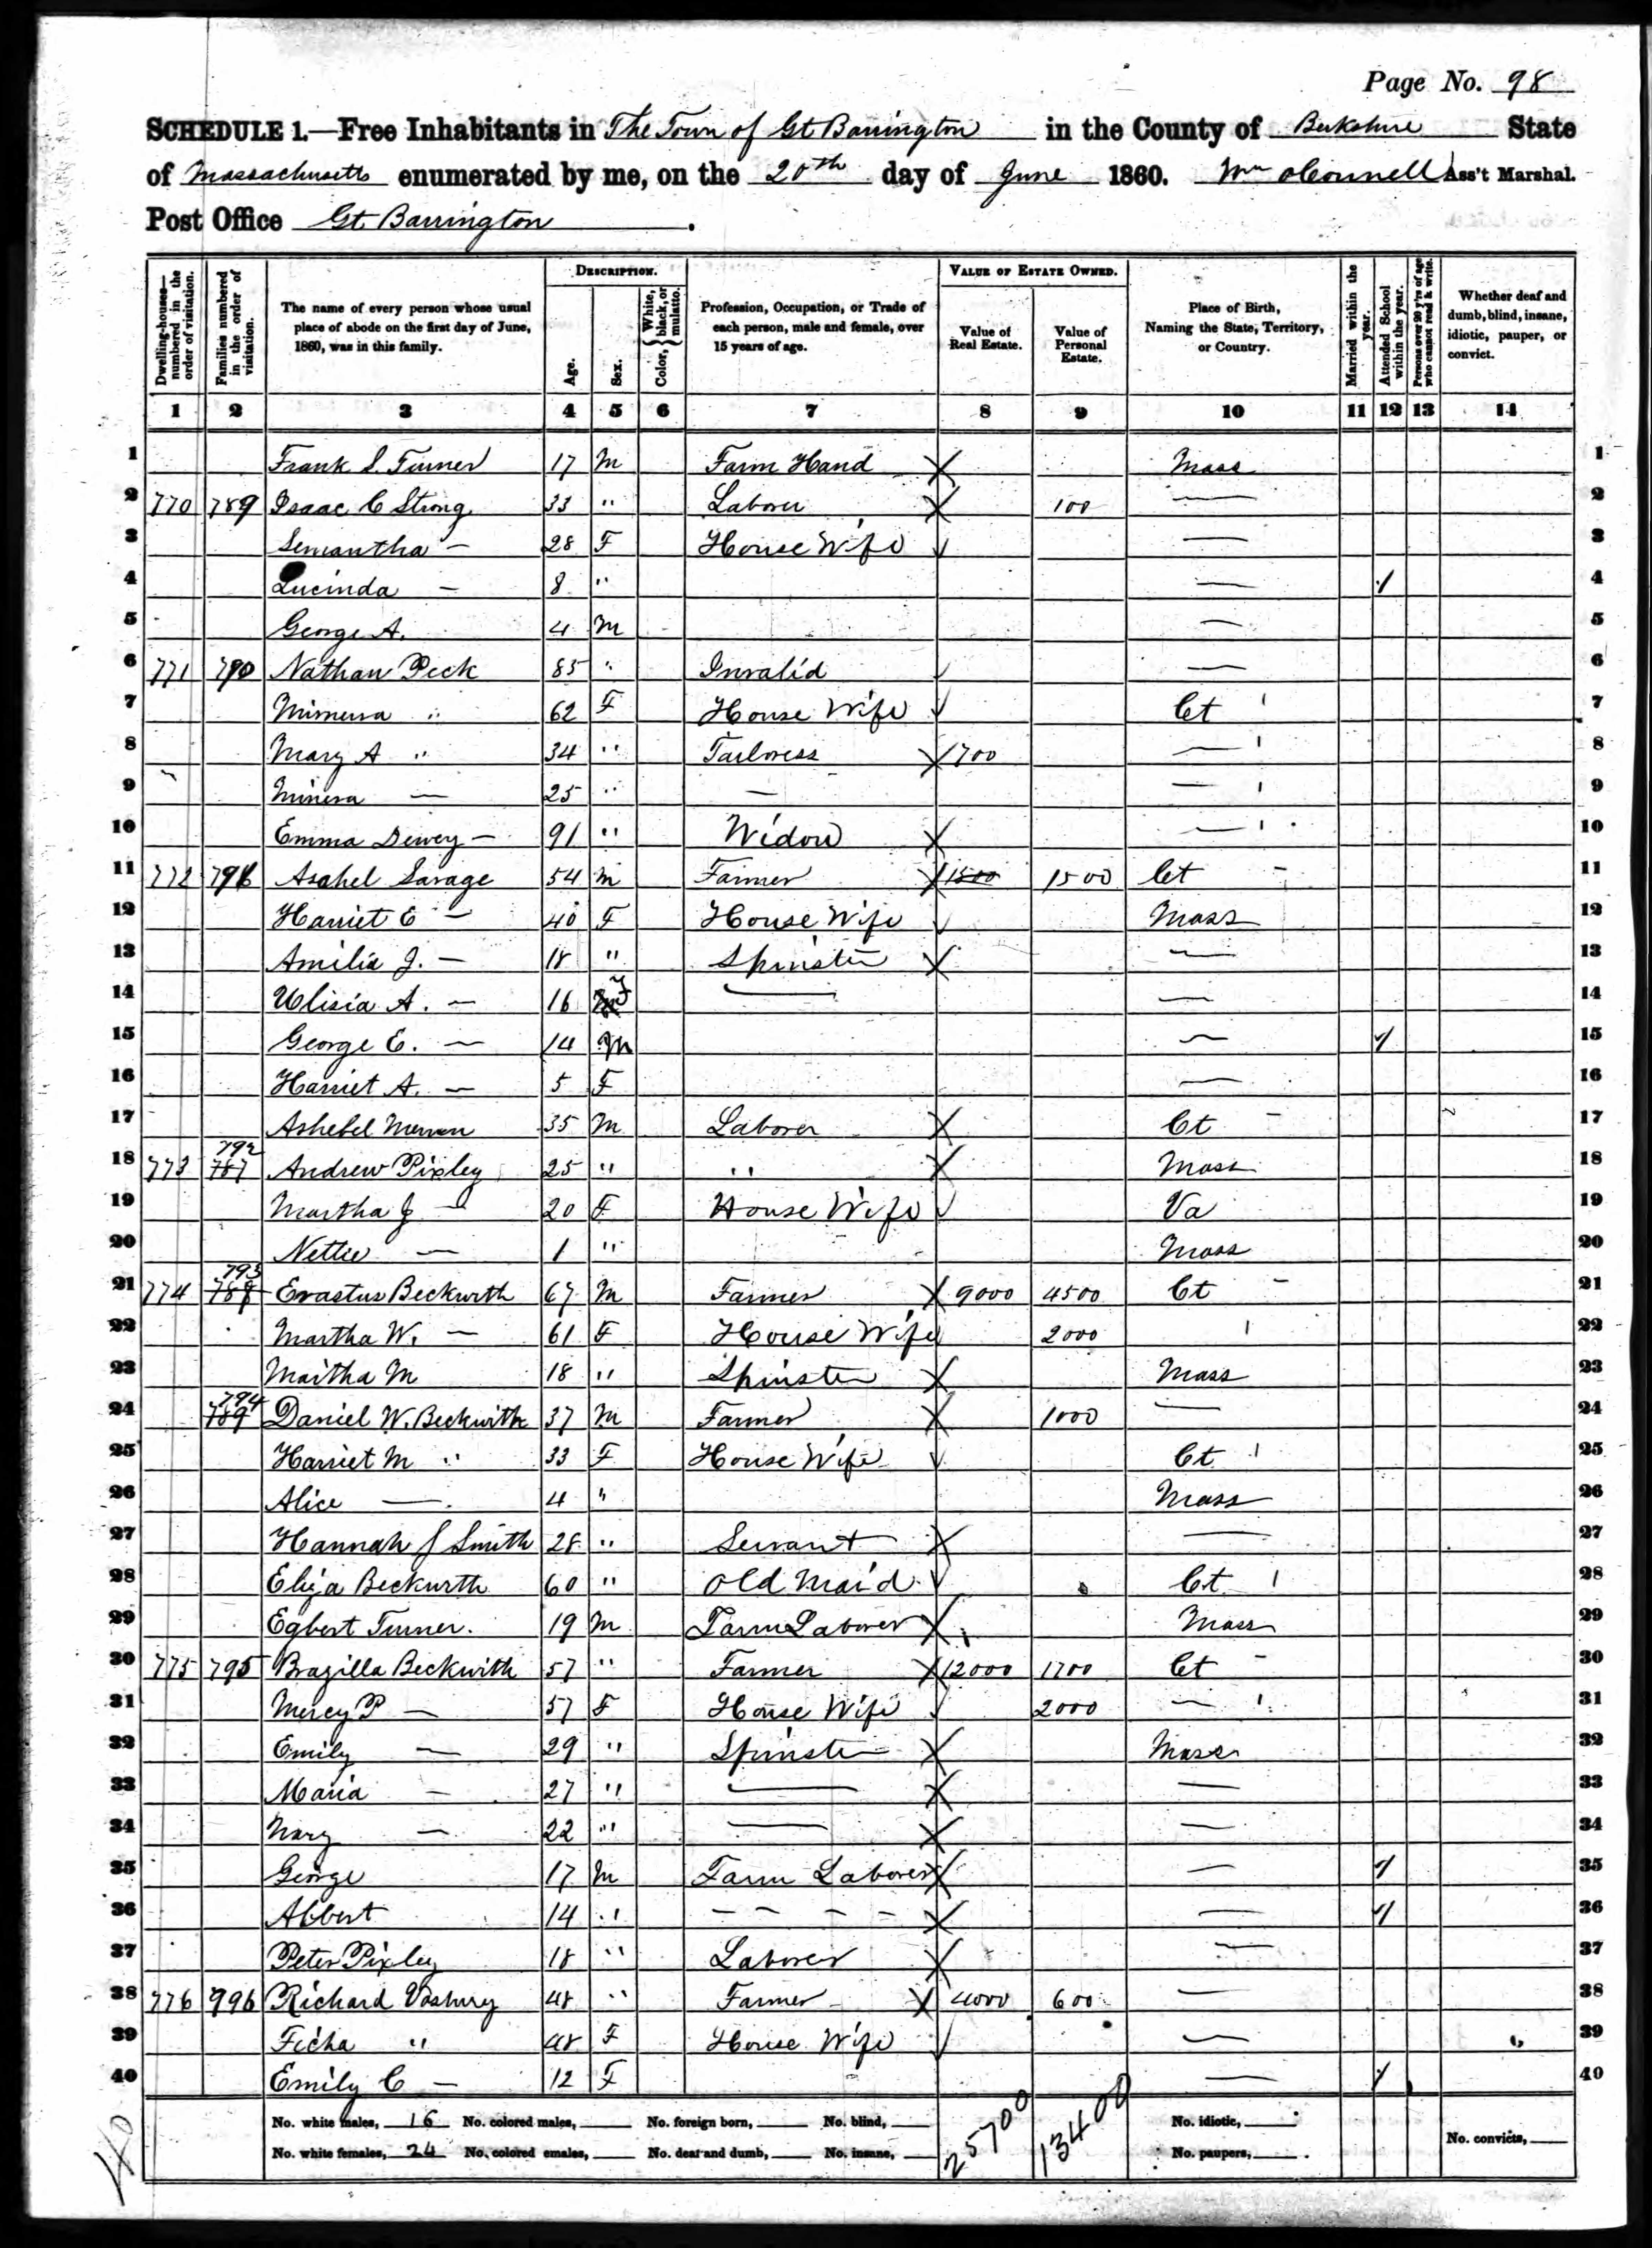 Page No. 98
SCHEDULE 1.—Free Inhabitants in The Town of Gt Barrington in the County of Berkshire State
of Massachusetts enumerated by me, on the 20th day of June 1860. Wm OConnell Ass't Marshal.
Post Office Gt. Barrington.
Dwelling-houses—numbered in the order of visitation. Families numbered in the order of visitation. The name of every person whose usual place of abode on the first day of June, 1860, was in this family. DESCRIPTION. Age. Sex. Color, {White, black, or mulatto. Profession, Occupation, or Trade of each person, male and female, over 15 years of age. VALUE OF ESTATE OWNED. Value of Real Estate. Value of Personal Estate. Place of Birth, Naming the State, Territory, or Country. Married within the year. Attended School within the year. Persons over 20 y'rs of age who cannot read & write. Whether deaf and dumb, blind, insane, idiotic, pauper, or convict.
1 2 3 4 5 6 7 8 9 10 11 12 13 14
1 Frank S. Turner 17 M Farm Hand X Mass 1
2 770 789 Isaac C Strong 33 " Laborer X 100 — 2
3 Semantha — 28 F House Wife √ — 3
4 Lucinda — 8 " — / 4
5 George A. 4 M — 5
6 771 790 Nathan Peck 85 " Invalid √ — 6
7 Minerva " 62 F House Wife √ Ct 7
8 Mary A " 34 " Tailoress X 700 — 8
9 Minerva — 25 " — — 9
10 Emma Dewey — 91 " Widow X — 10
11 772 791 Asahel Savage 54 M Farmer X 1500 1500 Ct 11
12 Harriet E — 40 F House Wife √ Mass 12
13 Amilia J. — 18 " Spinster X — 13
14 Ulisia A. — 16 F — — 14
15 George E. — 14 M — / 15
16 Harriet A. — 5 F — 16
17 Ashebel 35 M Laborer X Ct 17
18 773 787 792 Andrew Pixley 25 " " X Mass 18
19 Martha J — 20 F House Wife √ Va 19
20 Nettie — 1 " Mass 20
21 774 788 793 Erastus Beckwith 67 M Farmer X 9000 4500 Ct 21
22 Martha W. — 61 F House Wife 2000 22
23 Martha M 18 " Spinster X Mass 23
24 789 794 Daniel W. Beckwith 37 M Farmer X 1000 — 24
25 Harriet M " 33 F House Wife √ Ct 25
26 Alice — 4 " Mass 26
27 Hannah J Smith 28 " Servant X — 27
28 Eliza Beckwith 60 " Old Maid √ Ct 28
29 Egbert Turner. 19 M Farm Laborer X Mass 29
30 775 795 Brazilla Beckwith 57 " Farmer X 12000 1700 Ct 30
31 Mercy P — 57 F House Wife √ 2000 — 31
32 Emily — 29 " Spinster X Mass 32
33 Maria — 27 " — X — 33
34 Mary — 22 " — X — 34
35 George 17 M Farm Laborer X — / 35
36 Albert 14 " — — — — X — / 36
37 Peter Pixley 18 " Laborer X — 37
38 776 796 Richard Vosburg 48 " Farmer X 4000 600 — 38
39 Ficha " 48 F House Wife √ — 39
40 Emily C — 12 F — / 40
40 No. white males, 16 No. colored males, No. foreign born, No. blind, 25700 13400 No. idiotic,
No. white females, 24 No. colored emales, No. deaf and dumb, No. insane, No. paupers, No. convicts,